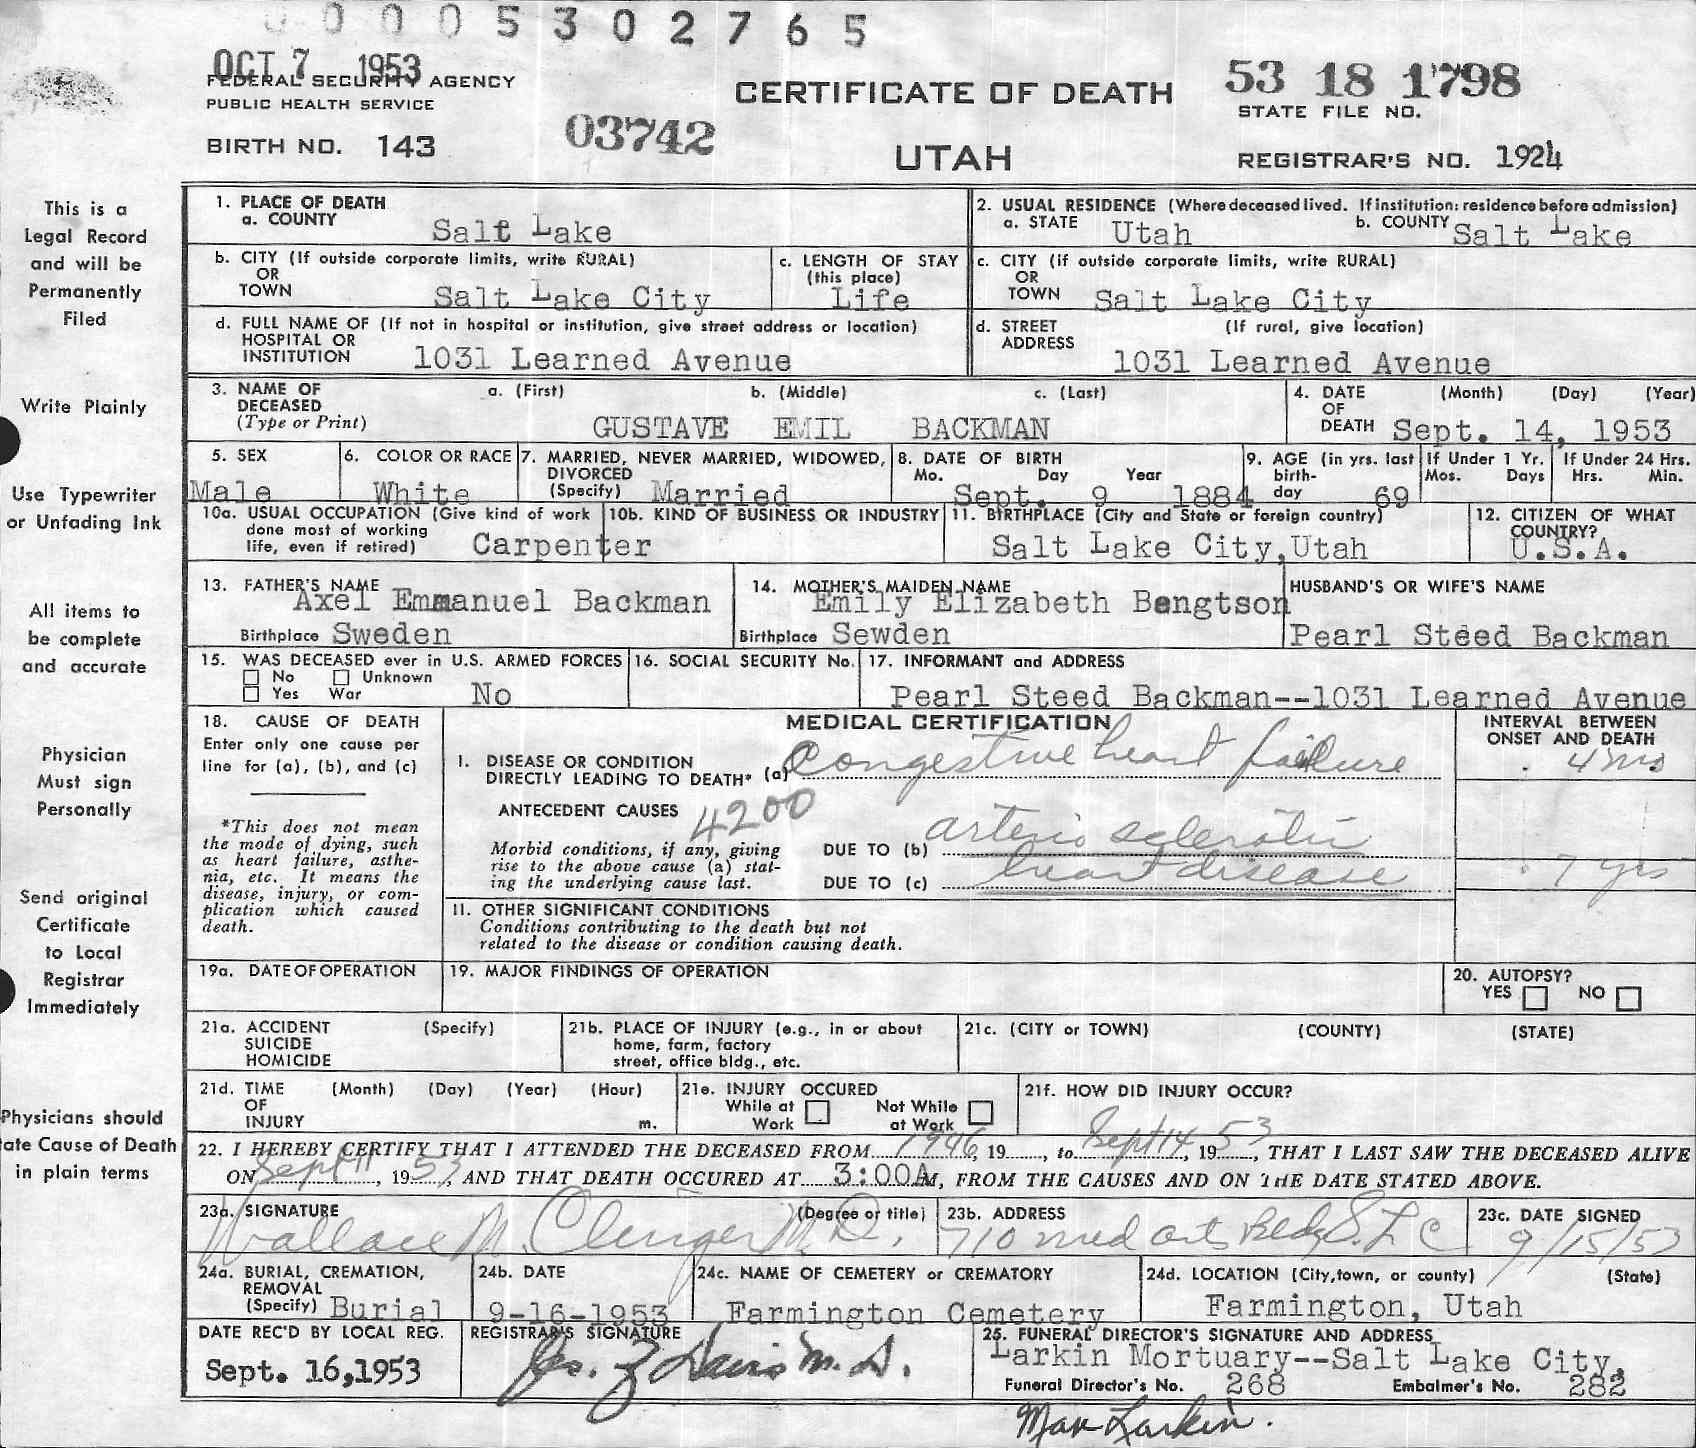 0 0 0 5 3 0 2 7 6 5
OCT 7 1953
FEDERAL SECURITY AGENCY
PUBLIC HEALTH SERVICE
BIRTH NO. 143
03742
CERTIFICATE OF DEATH
UTAH
53 18 1798
STATE FILE NO.
REGISTRAR'S NO. 1924
This is a
Legal Record
and will be
Permanently
Filed
Write Plainly
Use Typewriter
or Unfading Ink
All items to
be complete
and accurate
Physician
Must sign
Personally
Send original
Certificate
to Local
Registrar
Immediately
Physicians should
ate Cause of Death
in plain terms
1. PLACE OF DEATH
a. COUNTY Salt Lake
2. USUAL RESIDENCE (Where deceased lived. If institution: residence before admission)
a. STATE Utah b. COUNTY Salt Lake
b. CITY (If outside corporate limits, write RURAL)
OR
TOWN Salt Lake City
c. LENGTH OF STAY
(this place)
Life
c. CITY (if outside corporate limits, write RURAL)
OR
TOWN Salt Lake City
d. FULL NAME OF (If not in hospital or institution, give street address or location)
HOSPITAL OR
INSTITUTION 1031 Learned Avenue
d. STREET (If rural, give location)
ADDRESS
1031 Learned Avenue
3. NAME OF a. (First) b. (Middle) c. (Last)
DECEASED
(Type or Print) GUSTAVE EMIL BACKMAN
4. DATE (Month) (Day) (Year)
OF
DEATH Sept. 14, 1953
5. SEX
Male
6. COLOR OR RACE
White
7. MARRIED, NEVER MARRIED, WIDOWED,
DIVORCED
(Specify) Married
8. DATE OF BIRTH
Mo. Day Year
Sept. 9 1884
9. AGE (in yrs. last
birth-
day 69
If Under 1 Yr.
Mos. Days
If Under 24 Hrs.
Hrs. Min.
10a. USUAL OCCUPATION (Give kind of work
done most of working
life, even if retired) Carpenter
10b. KIND OF BUSINESS OR INDUSTRY
11. BIRTHPLACE (City and State or foreign country)
Salt Lake City, Utah
12. CITIZEN OF WHAT
COUNTRY?
U.S.A.
13. FATHER'S NAME
Axel Emmanuel Backman
Birthplace Sweden
14. MOTHER'S MAIDEN NAME
Emily Elizabeth Bengtson
Birthplace Sewden
HUSBAND'S OR WIFE'S NAME
Pearl Steed Backman
15. WAS DECEASED ever in U.S. ARMED FORCES
No Unknown
Yes War No
16. SOCIAL SECURITY No.
17. INFORMANT and ADDRESS
Pearl Steed Backman--1031 Learned Avenue
18. CAUSE OF DEATH
Enter only one cause per
line for (a), (b), and (c)
*This does not mean
the mode of dying, such
as heart failure, asthe-
nia, etc. It means the
disease, injury, or com-
plication which caused
death.
MEDICAL CERTIFICATION
INTERVAL BETWEEN
ONSET AND DEATH
I. DISEASE OR CONDITION
DIRECTLY LEADING TO DEATH* (a) Congestive heart failure 4 ms
ANTECEDENT CAUSES 4200
Morbid conditions, if any, giving
rise to the above cause (a) stat-
ing the underlying cause last.
DUE TO (b) arterio sclerotic
DUE TO (c) heart disease 7 yrs
11. OTHER SIGNIFICANT CONDITIONS
Conditions contributing to the death but not
related to the disease or condition causing death.
19a. DATE OF OPERATION
19. MAJOR FINDINGS OF OPERATION
20. AUTOPSY?
YES NO
21a. ACCIDENT (Specify)
SUICIDE
HOMICIDE
21b. PLACE OF INJURY (e.g., in or about
home, farm, factory
street, office bldg., etc.
21c. (CITY or TOWN) (COUNTY) (STATE)
21d. TIME (Month) (Day) (Year) (Hour)
OF
INJURY m.
21e. INJURY OCCURED
While at Work
Not While at Work
21f. HOW DID INJURY OCCUR?
22. I HEREBY CERTIFY THAT I ATTENDED THE DECEASED FROM 1946, 19, to Sept 14, 1953, THAT I LAST SAW THE DECEASED ALIVE
ON Sept 11, 1953, AND THAT DEATH OCCURED AT 3:00A M, FROM THE CAUSES AND ON THE DATE STATED ABOVE.
23a. SIGNATURE (Degree or title)
Wallace M. Clinger M.D.
23b. ADDRESS
710 med arts Bldg S.L.C
23c. DATE SIGNED
9/15/53
24a. BURIAL, CREMATION,
REMOVAL
(Specify) Burial
24b. DATE
9-16-1953
24c. NAME OF CEMETERY or CREMATORY
Farmington Cemetery
24d. LOCATION (City, town, or county) (State)
Farmington, Utah
DATE REC'D BY LOCAL REG.
Sept. 16, 1953
REGISTRAR'S SIGNATURE
Jas. Z Davis M.D.
25. FUNERAL DIRECTOR'S SIGNATURE AND ADDRESS
Larkin Mortuary--Salt Lake City,
Funeral Director's No. 268 Embalmer's No. 282
Max Larkin.